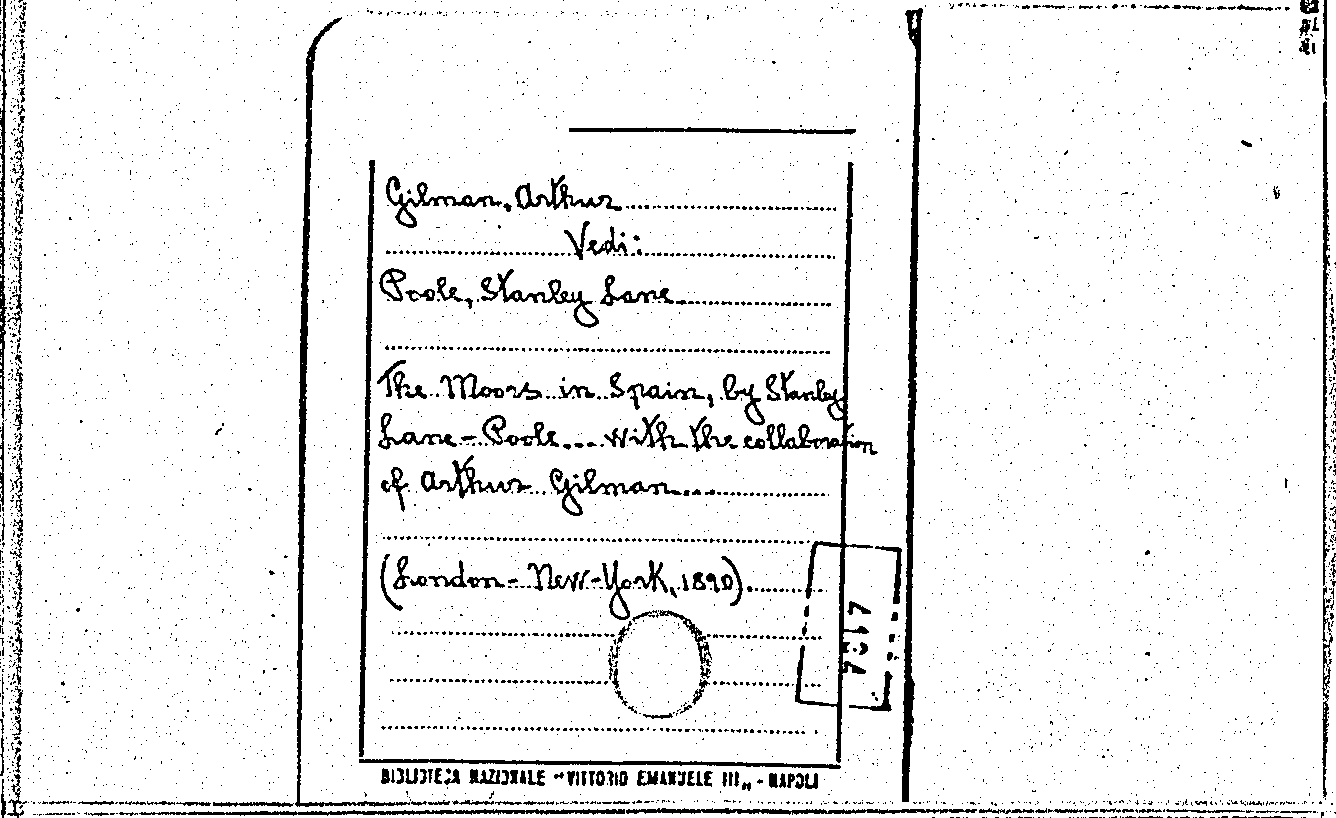 Gilman, Arthur
Vedi:
Poole, Stanley Lane
The Moors in Spain, by Stanley
Lane-Poole... with the collaboration
of Arthur Gilman...
(London-New-York, 1890).
BIBLIOTECA NAZIONALE "VITTORIO EMANUELE III„ - NAPOLI